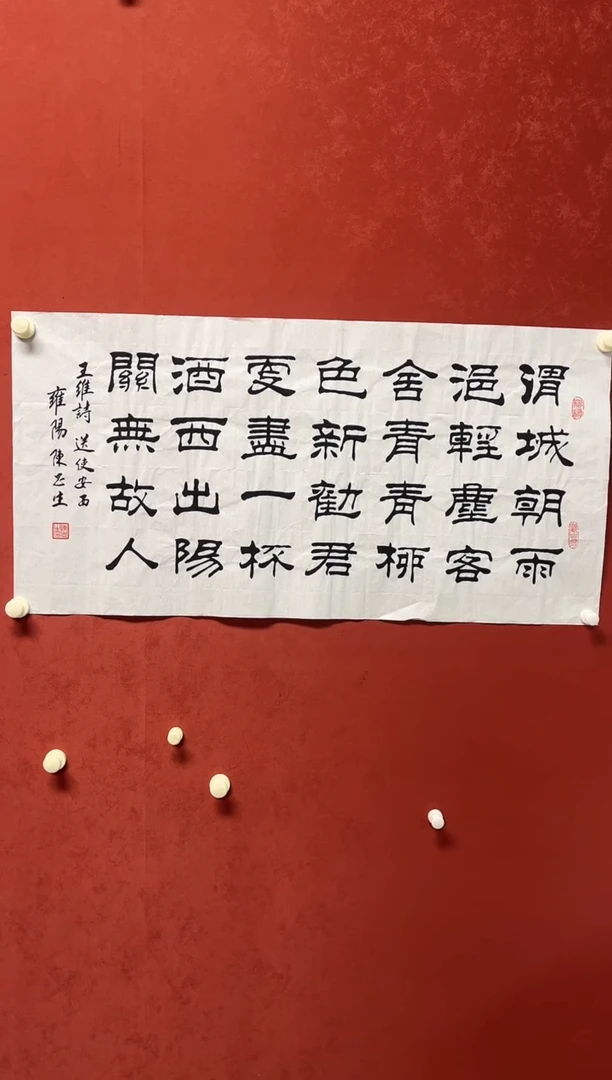 渭城朝雨
浥輕塵客
舍青青柳
色新勸君
更盡一杯
酒西出陽
關無故人
王維詩送使安西
雍陽陳正生